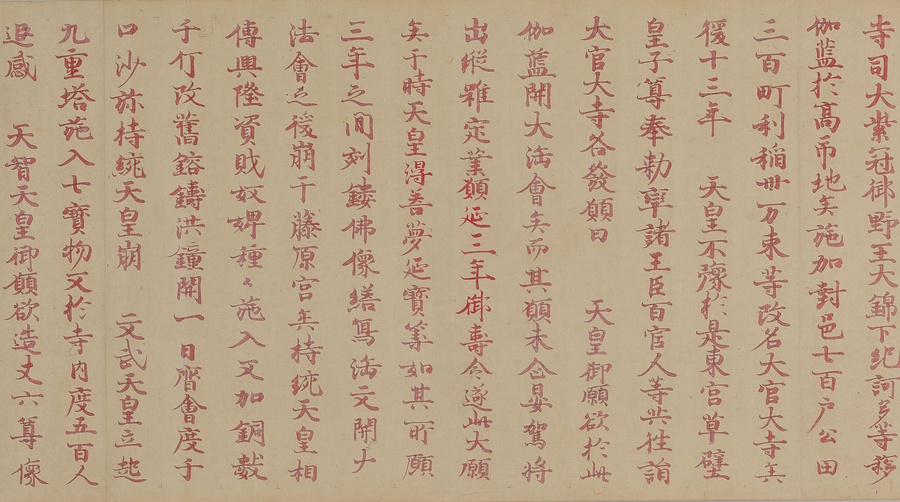 寺司大紫冠御野王大錦下紀訶多等移
伽藍於高市地矣施加封邑七百戸公田
三百町利稲卅万束等改名大官大寺矣
後十三年　天皇不豫於是東宮草壁
皇子尊奉勅率諸王臣百官人等共往詣
大官大寺各發願曰　天皇御願欲於此
伽藍開大法會矣而其願未合晏駕将
出縦雖定業願延三年御壽令遂此大願
矣于時天皇得善夢延寳筭如其所願
三年之間刻鏤佛像繕寫法文開大
法會之後崩于藤原宮矣持統天皇相
傳興隆資財奴婢種々施入又加銅數
千斤改舊鎔鑄洪鐘開一日齋會度千
口沙弥持統天皇崩　文武天皇立起
九重塔施入七寳物又於寺内度五百人
追感　天智天皇御願欲造丈六尊像